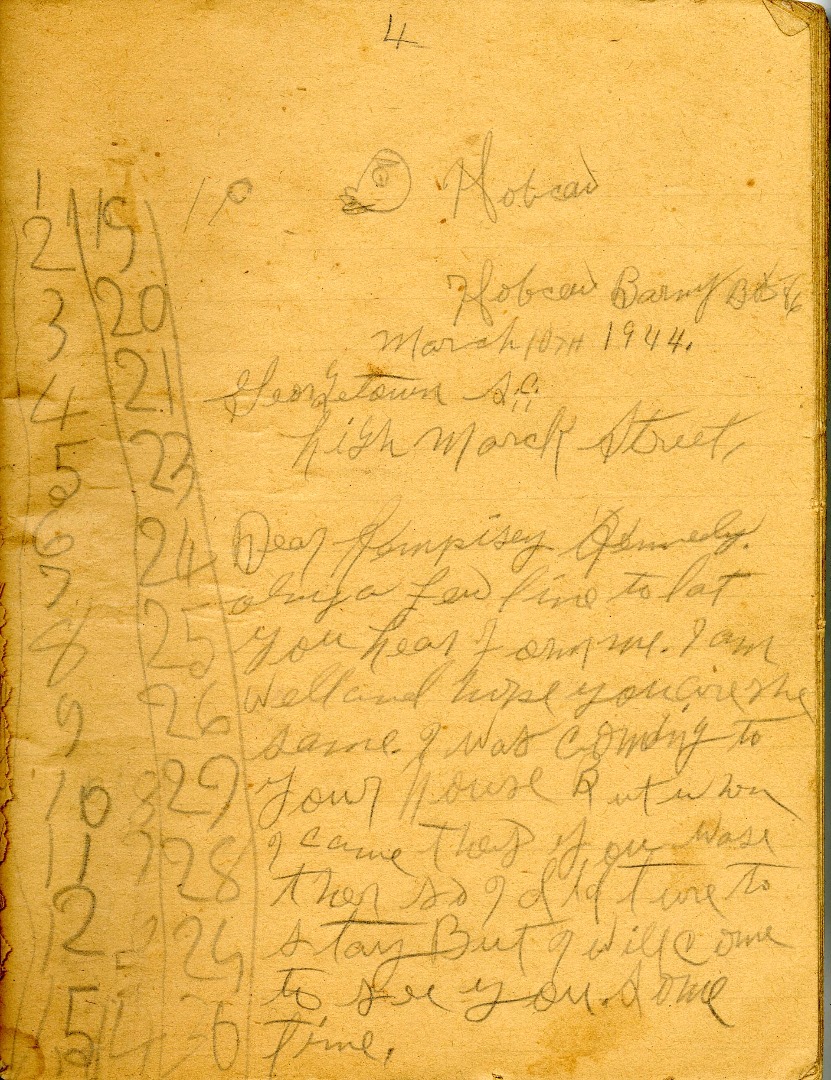 4
Hobcaw
Hobcaw Barny
March 10TH 1944.
Georgetown S.C.
high Marck Street,
Dear Kennedy.
a few line to lat
you hear me. I am
well and hope you are the
same. I was coming to
your house But when
I came you was
ther so I to
stay But I will come
to see you. Some
time.
1
2 19
3 20
4 21
5 23
6 24
7 25
8 26
9 29
10 28
11
12
15